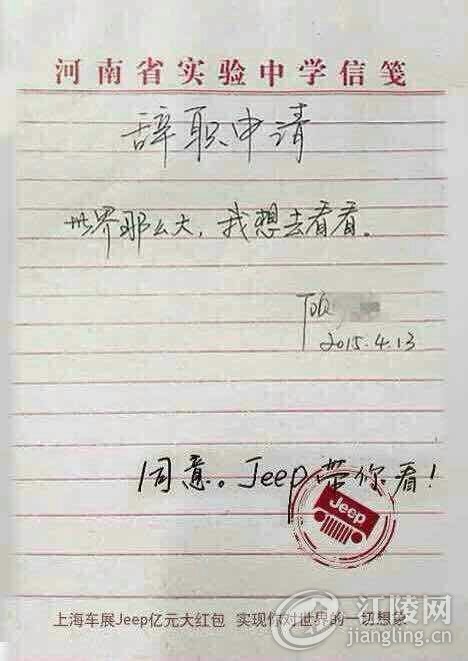 河南省实验中学信笺
辞职申请
世界那么大，我想去看看。
顾
2015.4.13
同意。Jeep带你看！
Jeep
上海车展Jeep亿元大红包 实现你对世界的一切想象
江陵网
jiangling.cn